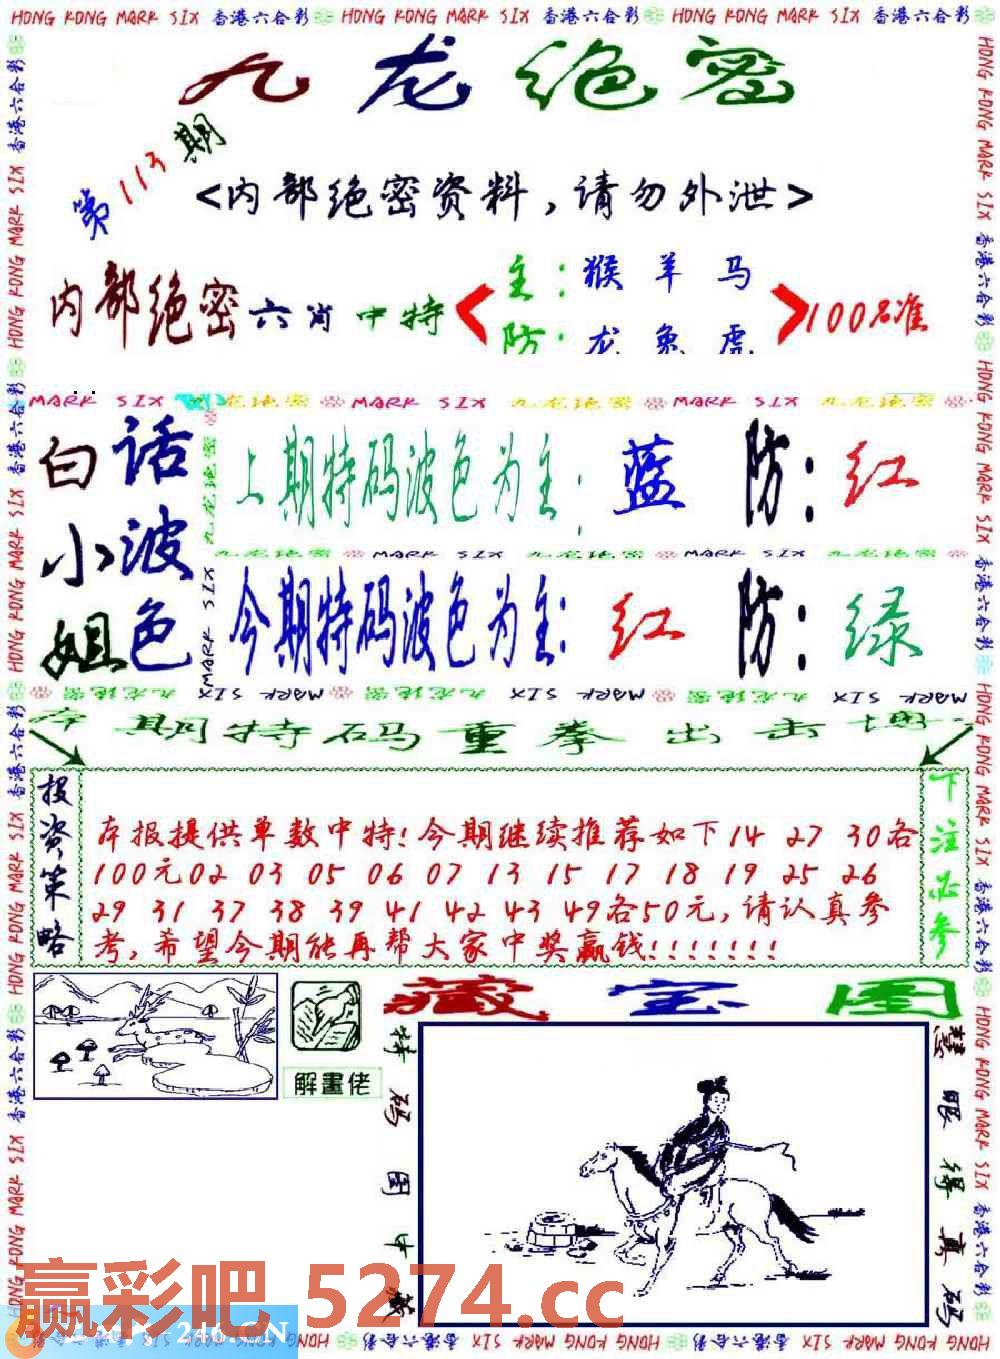 HONG KONG MARK SIX 香港六合彩 HONG KONG MARK SIX 香港六合彩 HONG KONG MARK SIX 香港六合彩
九龙绝密
第113期
<内部绝密资料,请勿外泄>
内部绝密六肖中特
主:猴羊马
防:龙兔虎
100%准
MARK SIX 九龙绝密 MARK SIX 九龙绝密 MARK SIX 九龙绝密
白小姐
话波色
上期特码波色为主:蓝 防:红
九龙绝密 MARK SIX 九龙绝密 MARK SIX 九龙绝密
今期特码波色为主:红 防:绿
本期特码重拳出击
投资策略
本报提供单数中特!今期继续推荐如下14 27 30各
100元02 03 05 06 07 13 15 17 18 19 25 26
29 31 37 38 39 41 42 43 49各50元,请认真参
考,希望今期能再帮大家中奖赢钱!!!!!!!
下注必参
藏宝图
解畫佬
特码图中藏
慧眼得真码
赢彩吧 5274.cc
246T.CN